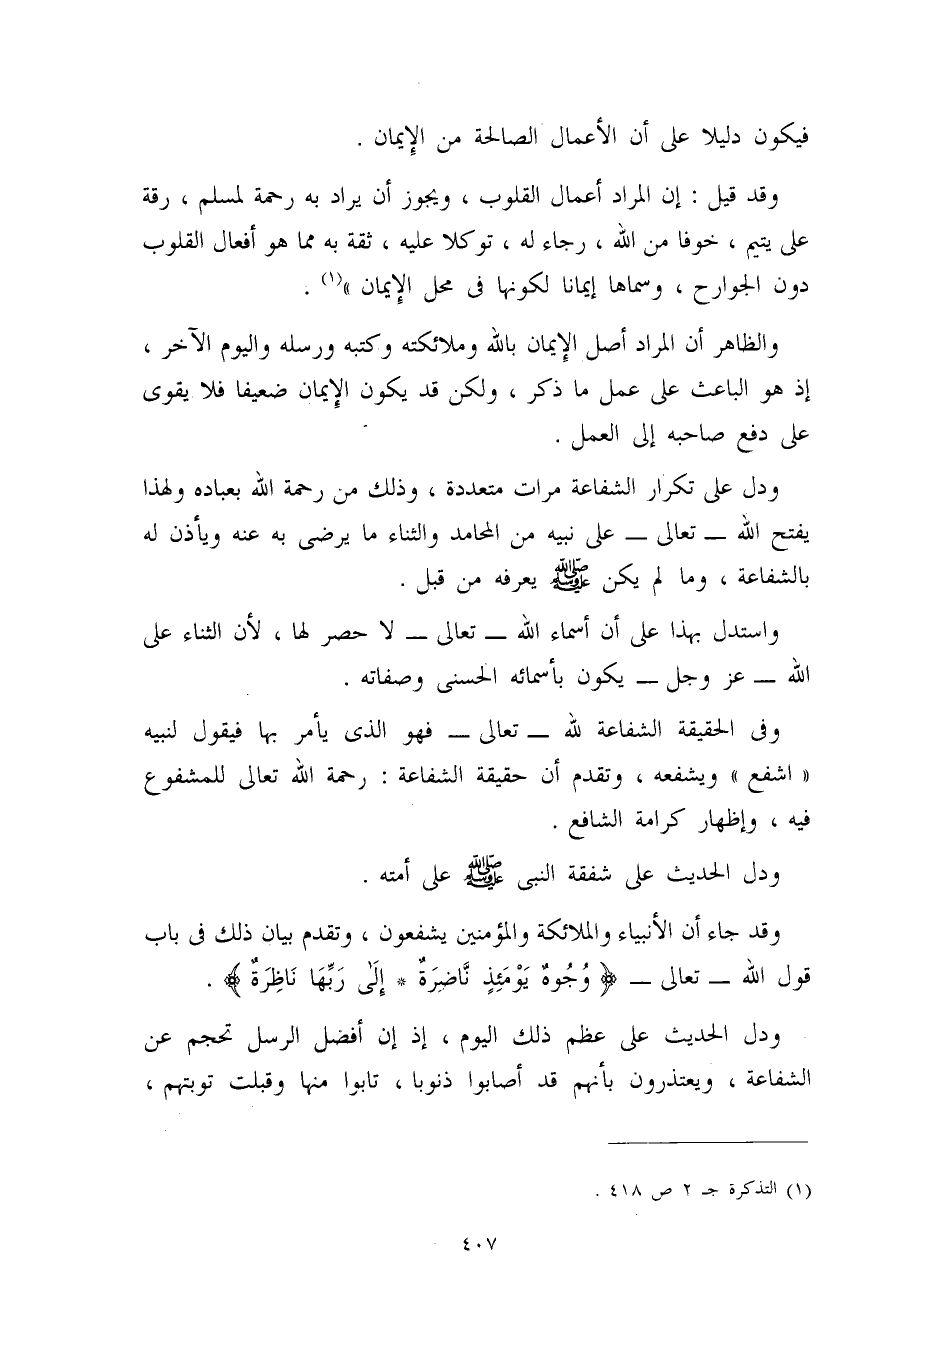 فيكون دليلا على أن الأعمال الصالحة من الإيمان .
وقد قيل : إن المراد أعمال القلوب ، ويجوز أن يراد به رحمة لمسلم ، رقة
على يتيم ، خوفا من الله ، رجاء له ، توكلا عليه ، ثقة به مما هو أفعال القلوب
دون الجوارح ، وسماها إيمانا لكونها فى محل الإيمان »(١) .
والظاهر أن المراد أصل الإيمان بالله وملائكته وكتبه ورسله واليوم الآخر ،
إذ هو الباعث على عمل ما ذكر ، ولكن قد يكون الإيمان ضعيفا فلا يقوى
على دفع صاحبه إلى العمل .
ودل على تكرار الشفاعة مرات متعددة ، وذلك من رحمة الله بعباده ولهذا
يفتح الله ــ تعالى ــ على نبيه من المحامد والثناء ما يرضى به عنه ويأذن له
بالشفاعة ، وما لم يكن ﷺ يعرفه من قبل .
واستدل بهذا على أن أسماء الله ــ تعالى ــ لا حصر لها ، لأن الثناء على
الله ــ عز وجل ــ يكون بأسمائه الحسنى وصفاته .
وفى الحقيقة الشفاعة لله ــ تعالى ــ فهو الذى يأمر بها فيقول لنبيه
« اشفع » ويشفعه ، وتقدم أن حقيقة الشفاعة : رحمة الله تعالى للمشفوع
فيه ، وإظهار كرامة الشافع .
ودل الحديث على شفقة النبى ﷺ على أمته .
وقد جاء أن الأنبياء والملائكة والمؤمنين يشفعون ، وتقدم بيان ذلك فى باب
قول الله ــ تعالى ــ ﴿ وُجُوهٌ يَوْمَئِذٍ نَّاضِرَةٌ * إِلَىٰ رَبِّهَا نَاظِرَةٌ ﴾ .
ودل الحديث على عظم ذلك اليوم ، إذ إن أفضل الرسل تحجم عن
الشفاعة ، ويعتذرون بأنهم قد أصابوا ذنوبا ، تابوا منها وقبلت توبتهم ،
(١) التذكرة جـ ٢ ص ٤١٨ .
٤٠٧